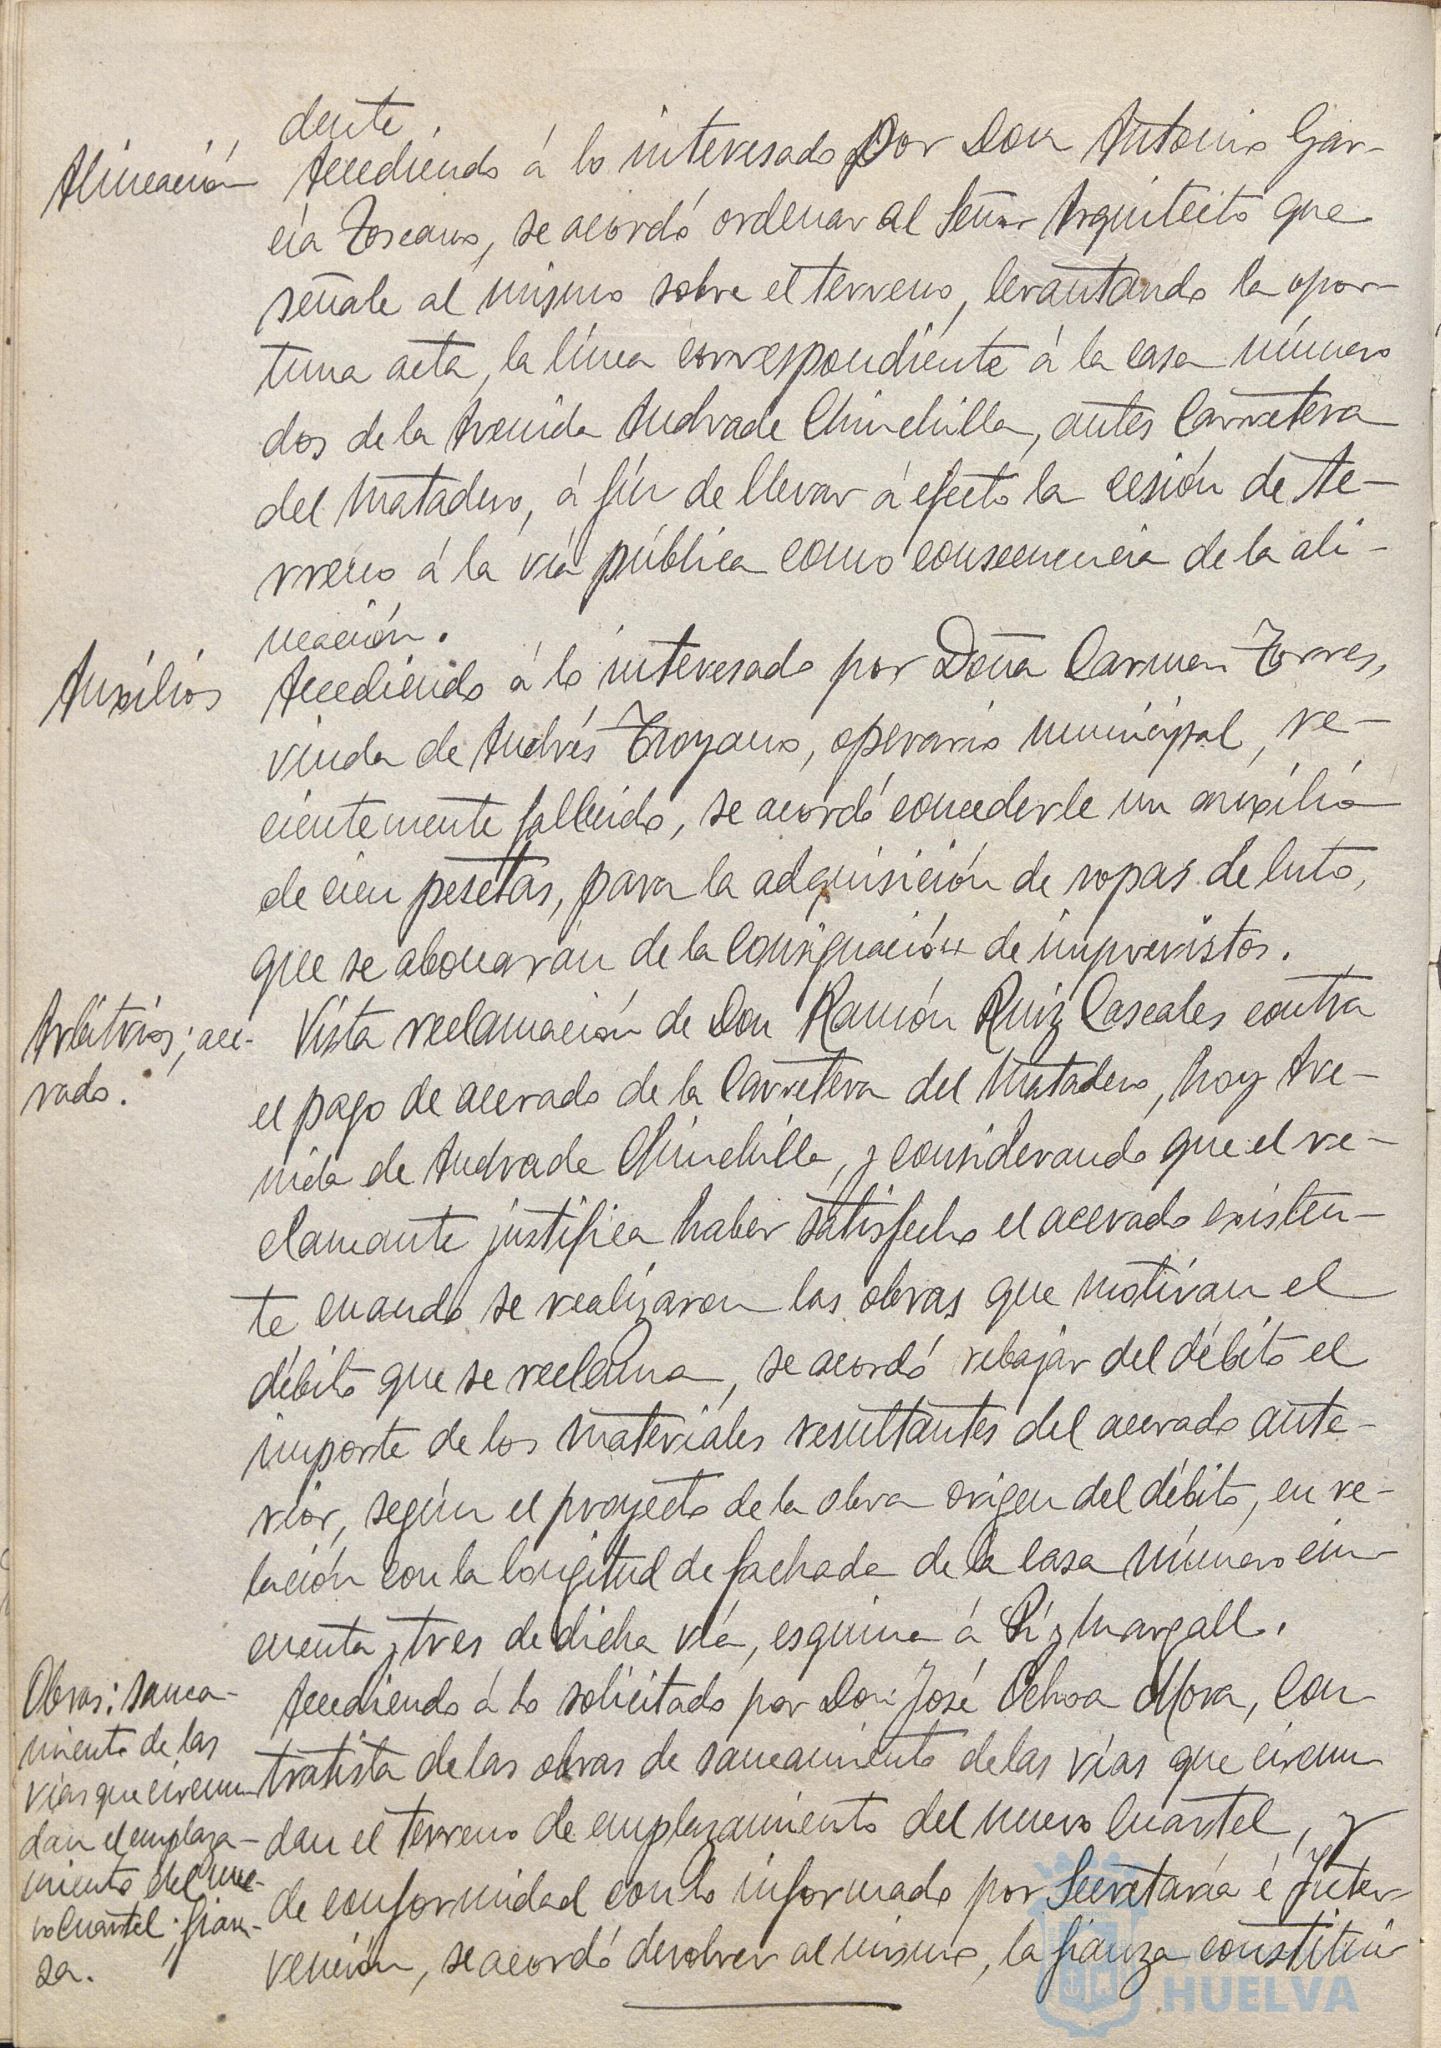 dente
Alineación
Accediendo á lo interesado por Don Antonio Gar-
cía Toscano, se acordó ordenar al Señor Arquitecto que
señale al mismo sobre el terreno, levantando la opor-
tuna acta, la línea correspondiente á la casa número
dos de la Avenida Andrade Chinchilla, antes Carretera
del Matadero, á fin de llevar á efecto la cesión de te-
rreno á la vía pública como consecuencia de la ali-
neación.
Auxilios
Accediendo á lo interesado por Doña Carmen Torres,
viuda de Andrés Troyano, operario municipal, re-
cientemente fallecido, se acordó concederle un auxilio
de cien pesetas, para la adquisición de ropas de luto,
que se abonarán de la consignación de imprevistos.
Arbitrios; ace-
rado.
Vista reclamación de Don Ramón Ruiz Cascales contra
el pago de acerado de la Carretera del Matadero, hoy Ave-
nida de Andrade Chinchilla, y considerando que el re-
clamante justifica haber satisfecho el acerado existen-
te cuando se realizaron las obras que motivan el
débito que se reclama, se acordó rebajar del débito el
importe de los materiales resultantes del acerado ante-
rior, según el proyecto de la obra origen del débito, en re-
lación con la longitud de fachada de la casa número cin-
cuenta y tres de dicha vía, esquina á Pí y Margall.
Obras: sanea-
miento de las
vías que circun-
dan el emplaza-
miento del nue-
vo Cuartel; fian-
za.
Accediendo á lo solicitado por Don José Ochoa Mora, con-
tratista de las obras de saneamiento de las vías que circun-
dan el terreno de emplazamiento del nuevo Cuartel, y
de conformidad con lo informado por Secretaría é Inter-
vención, se acordó devolver al mismo, la fianza constituí-
HUELVA